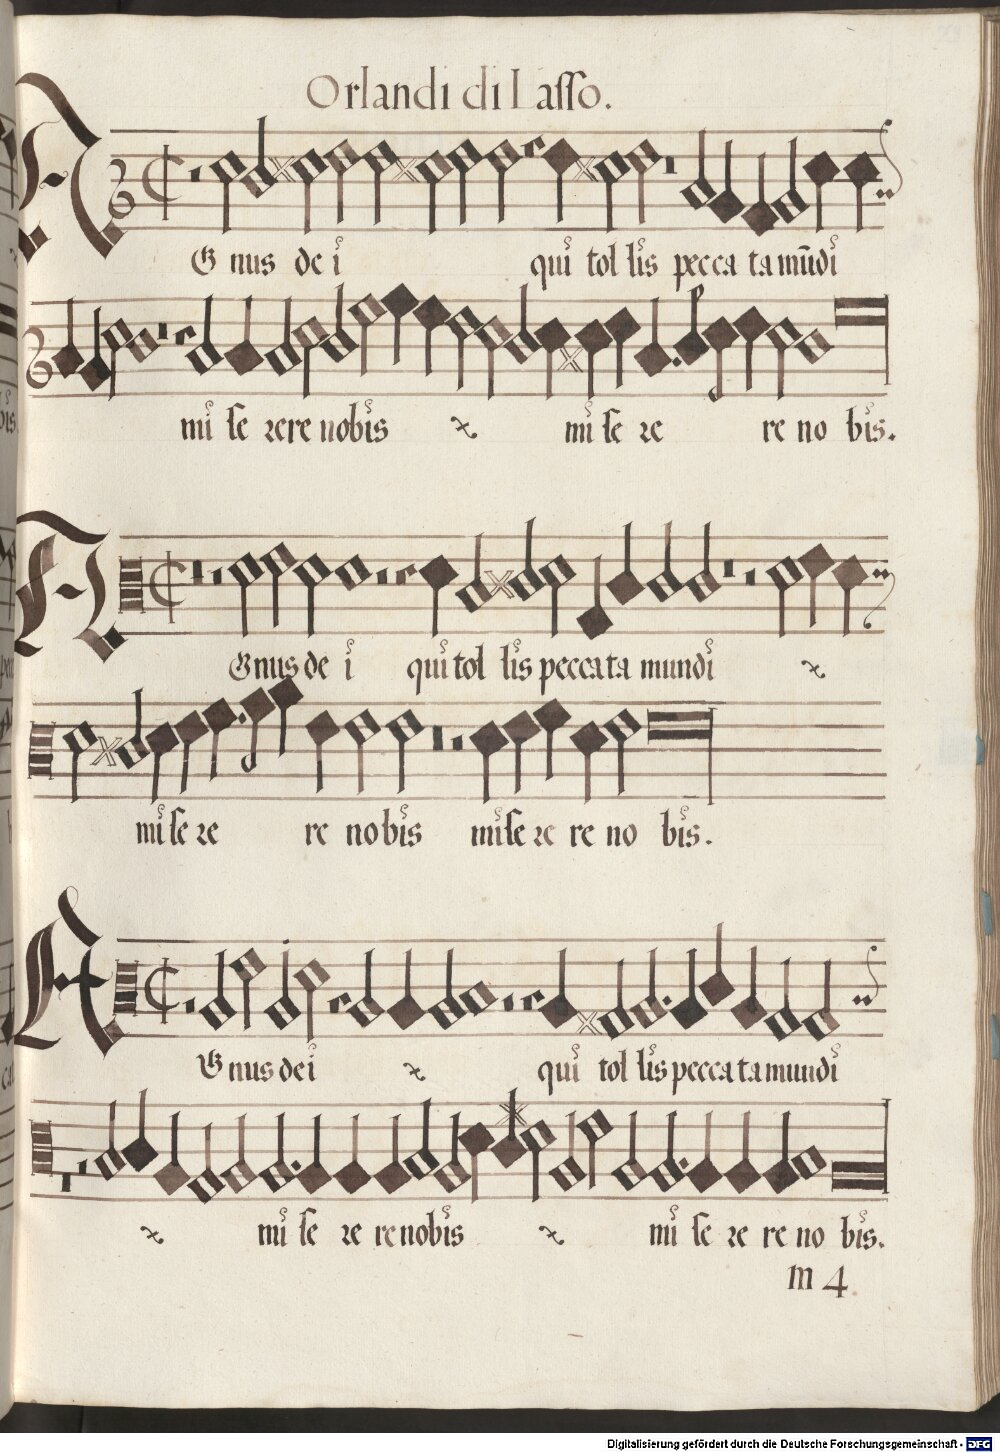 Orlandi di Lasso.
Agnus dei qui tollis peccata mūdi
miserere nobis miserere nobis.
Agnus dei qui tollis peccata mundi
miserere nobis miserere nobis.
Agnus dei qui tollis peccata mundi
miserere nobis miserere nobis.
m 4
Digitalisierung gefördert durch die Deutsche Forschungsgemeinschaft - DFG